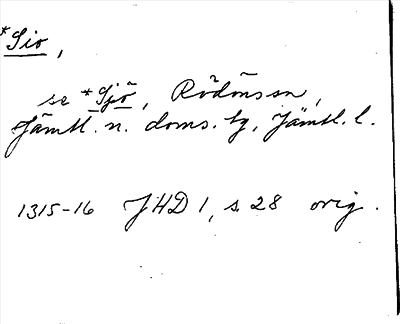 *Sio,
se *Sjö, Rödöns sn,
Jämtl. n. doms. tg, Jämtl. l.
1315-16 JHD 1, s 28 orig.